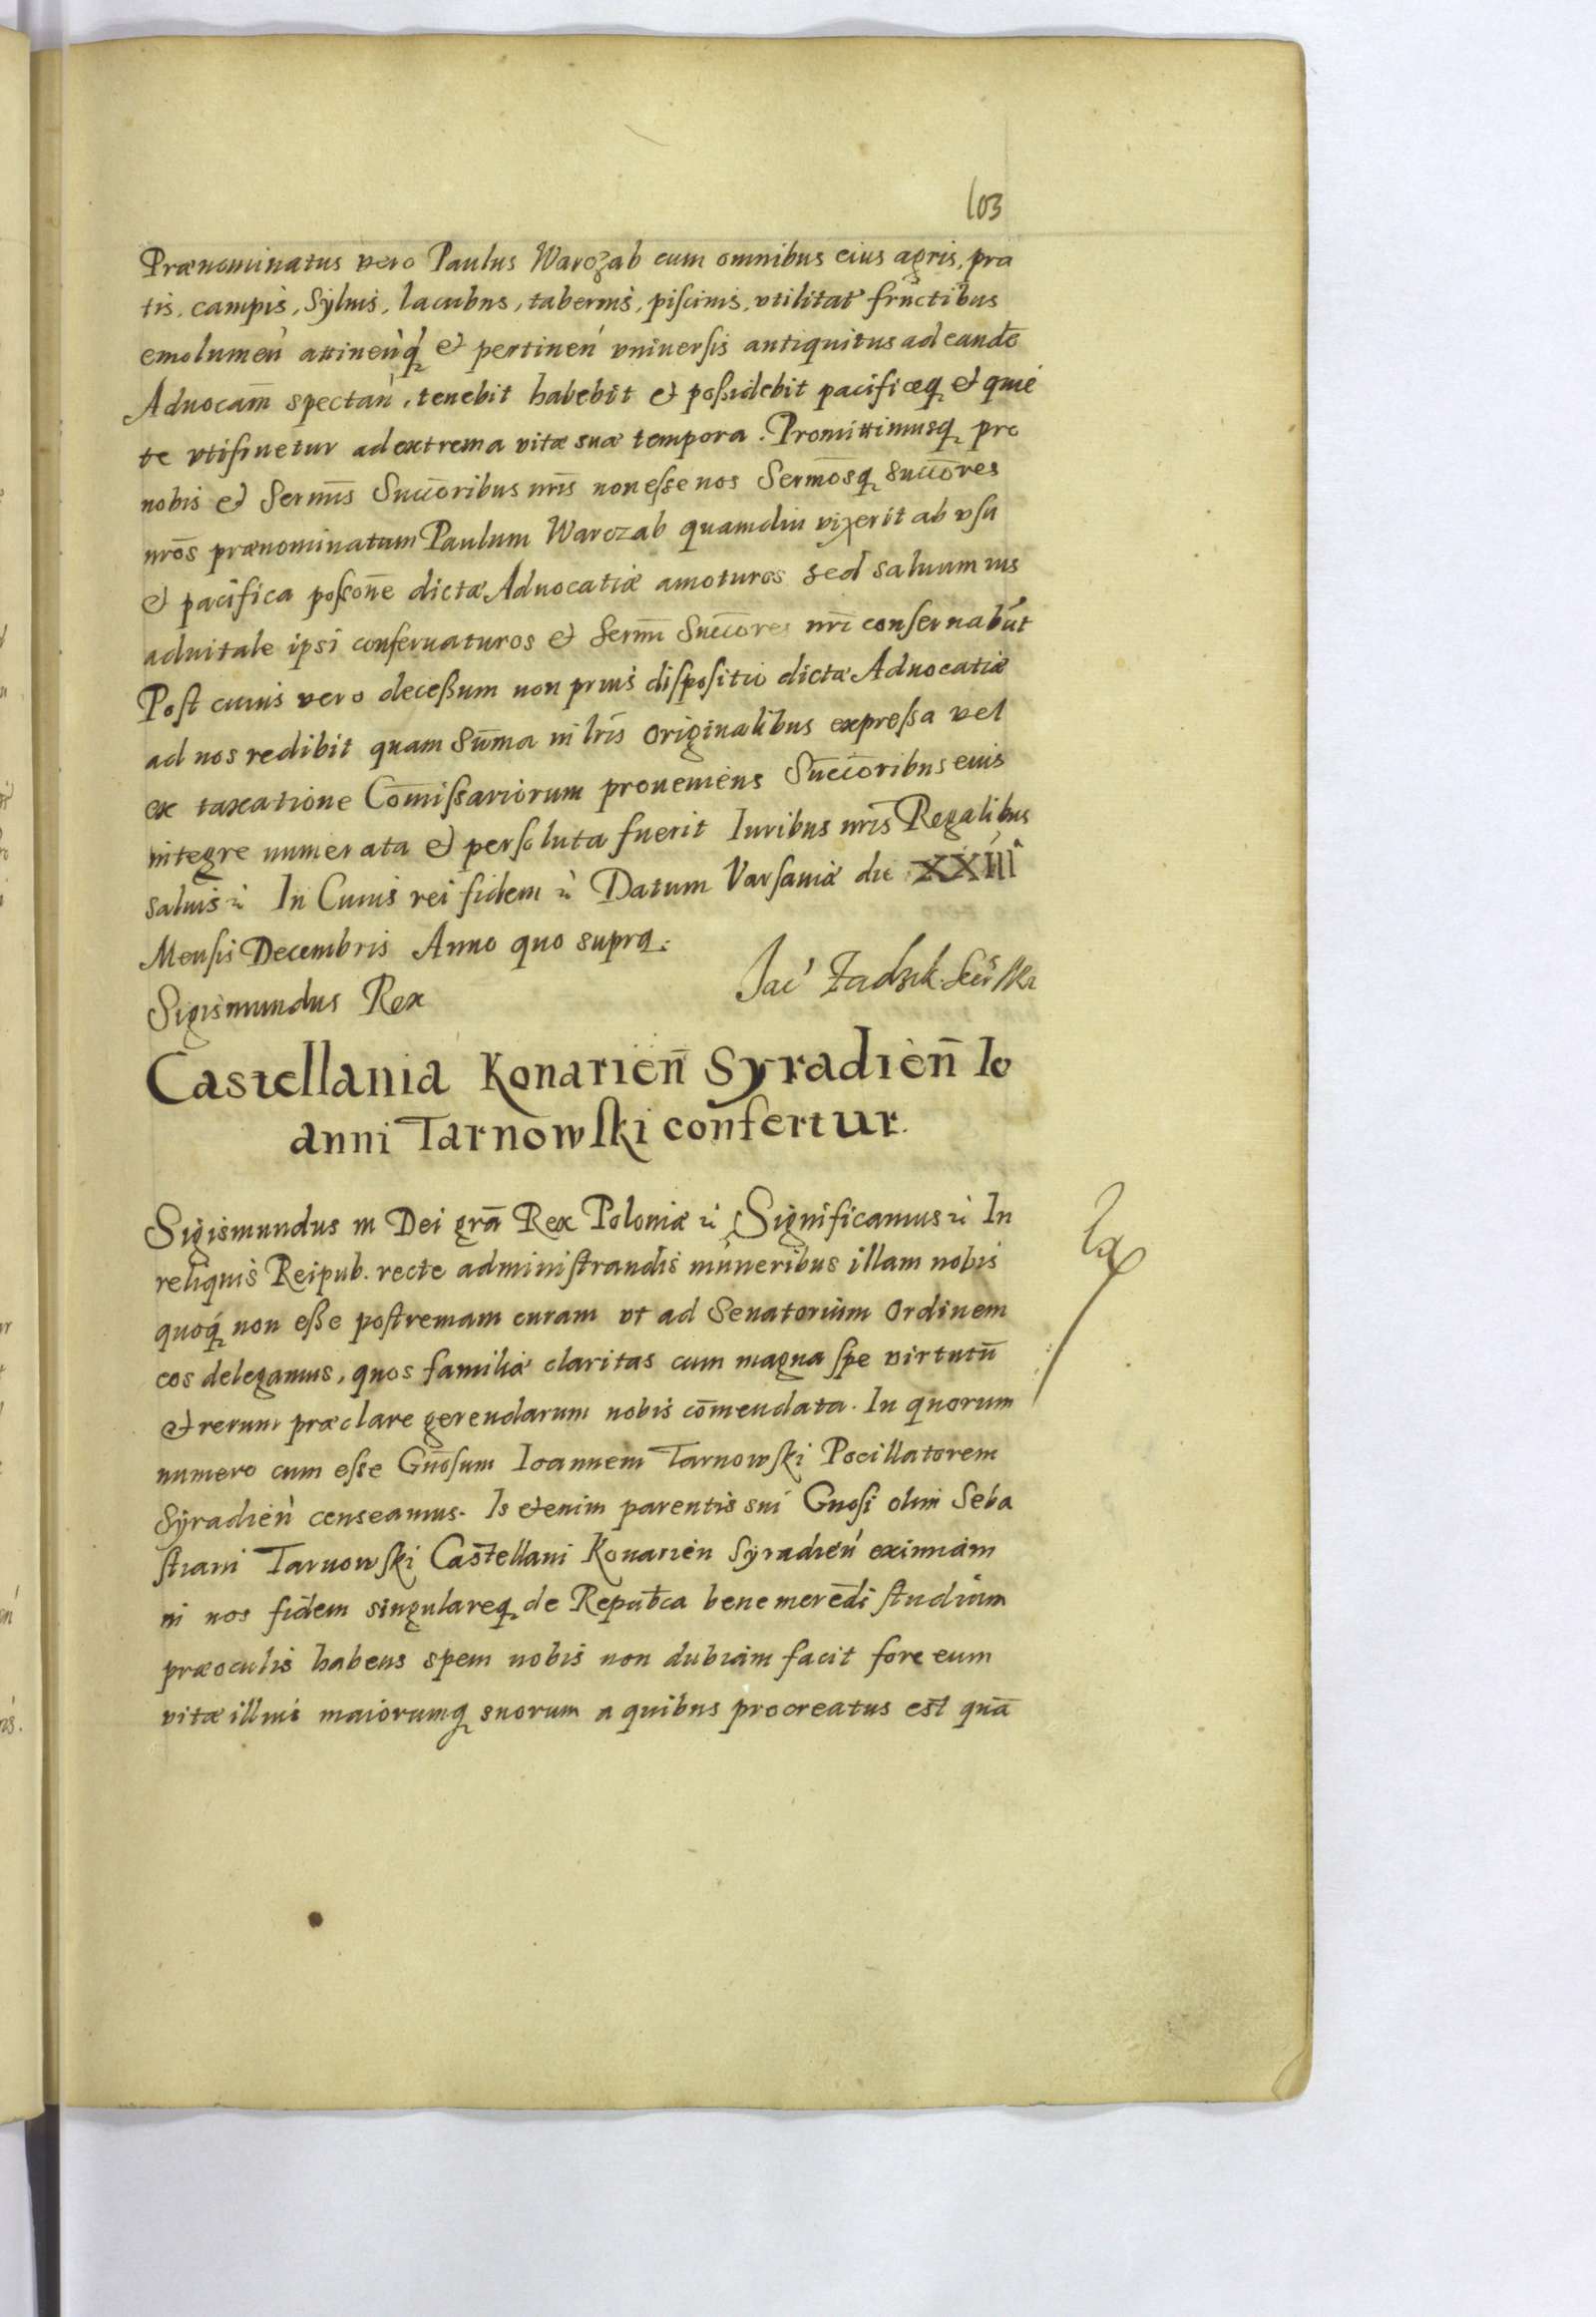 103
Prænominatus vero Paulus Warozab cum omnibus eius agris, pra
tis, campis, Syluis, lacubus, tabernis, piscinis, vtilitat fructibus
emolumen attinenq et pertinen vniuersis antiquitus ad eandē
Aduocam̄ spectan, tenebit habebit et possidebit pacificæq et quie
te vtifruetur ad extrema vitæ suæ tempora. Promittimusq pro
nobis et Sermīs Succōribus nrīs non esse nos Sermōsq succōres
nrōs prænominatum Paulum Warozab quamdiu vixerit ab vsu
et pacifica possōne dictæ Aduocatiæ amoturos sed saluum ius
aduitale ipsi conseruaturos et Sermī Succōres nrī conseruabūt
Post cuius vero decessum non prius dispositio dictæ Aduocatiæ
ad nos redibit quam Sūma in lrīs originalibus expressa vel
ex taxatione Cōmissariorum proueniens Succōribus eius
integre numerata et persoluta fuerit Iuribus nrīs Regalibus
saluis etc In Cuius rei fidem etc Datum Varsauiæ die XXIII
Mensis Decembris Anno quo supra.
Sigismundus Rex
Jac Zadzik
Castellania Konarien̄ Syradien̄ Io
anni Tarnowski confertur.
Sigismundus III Dei grā Rex Poloniæ etc Significamus etc In
reliquis Reipub. recte administrandis muneribus illam nobis
quoq non esse postremam curam vt ad Senatorium Ordinem
eos delegamus, quos familiæ claritas cum magna spe virtutū
et rerum præclare gerendarum nobis cōmendata. In quorum
numero cum esse Gnōsum Ioannem Tarnowski Pocillatorem
Syradien censeamus. Is etenim parentis sui Gnosi olim Seba
stiani Tarnowski Castellani Konarien Syradien eximiam
in nos fidem singulareq de Repub̄ca bene merēdi studium
præoculis habens spem nobis non dubiam facit fore eum
vitæ illius maiorumq suorum a quibus procreatus est quā